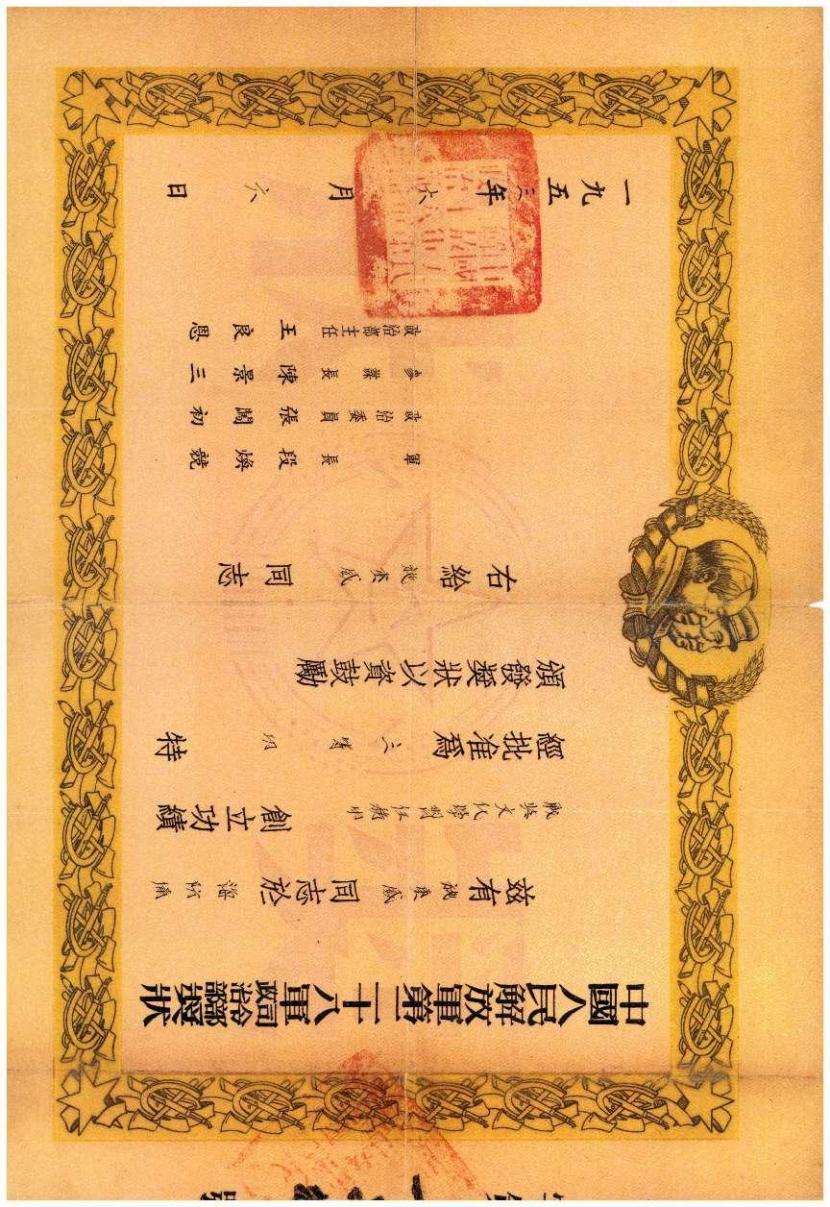 中國人民解放軍第二十八軍司令政治部獎狀
茲有同志於海防
創立功績
經批准爲三等功特
頒發獎狀以資鼓勵
右給同志
軍長段煥競
政治委員張闓初
參謀長陳景三
政治部主任王良恩
一九五三年六月六日